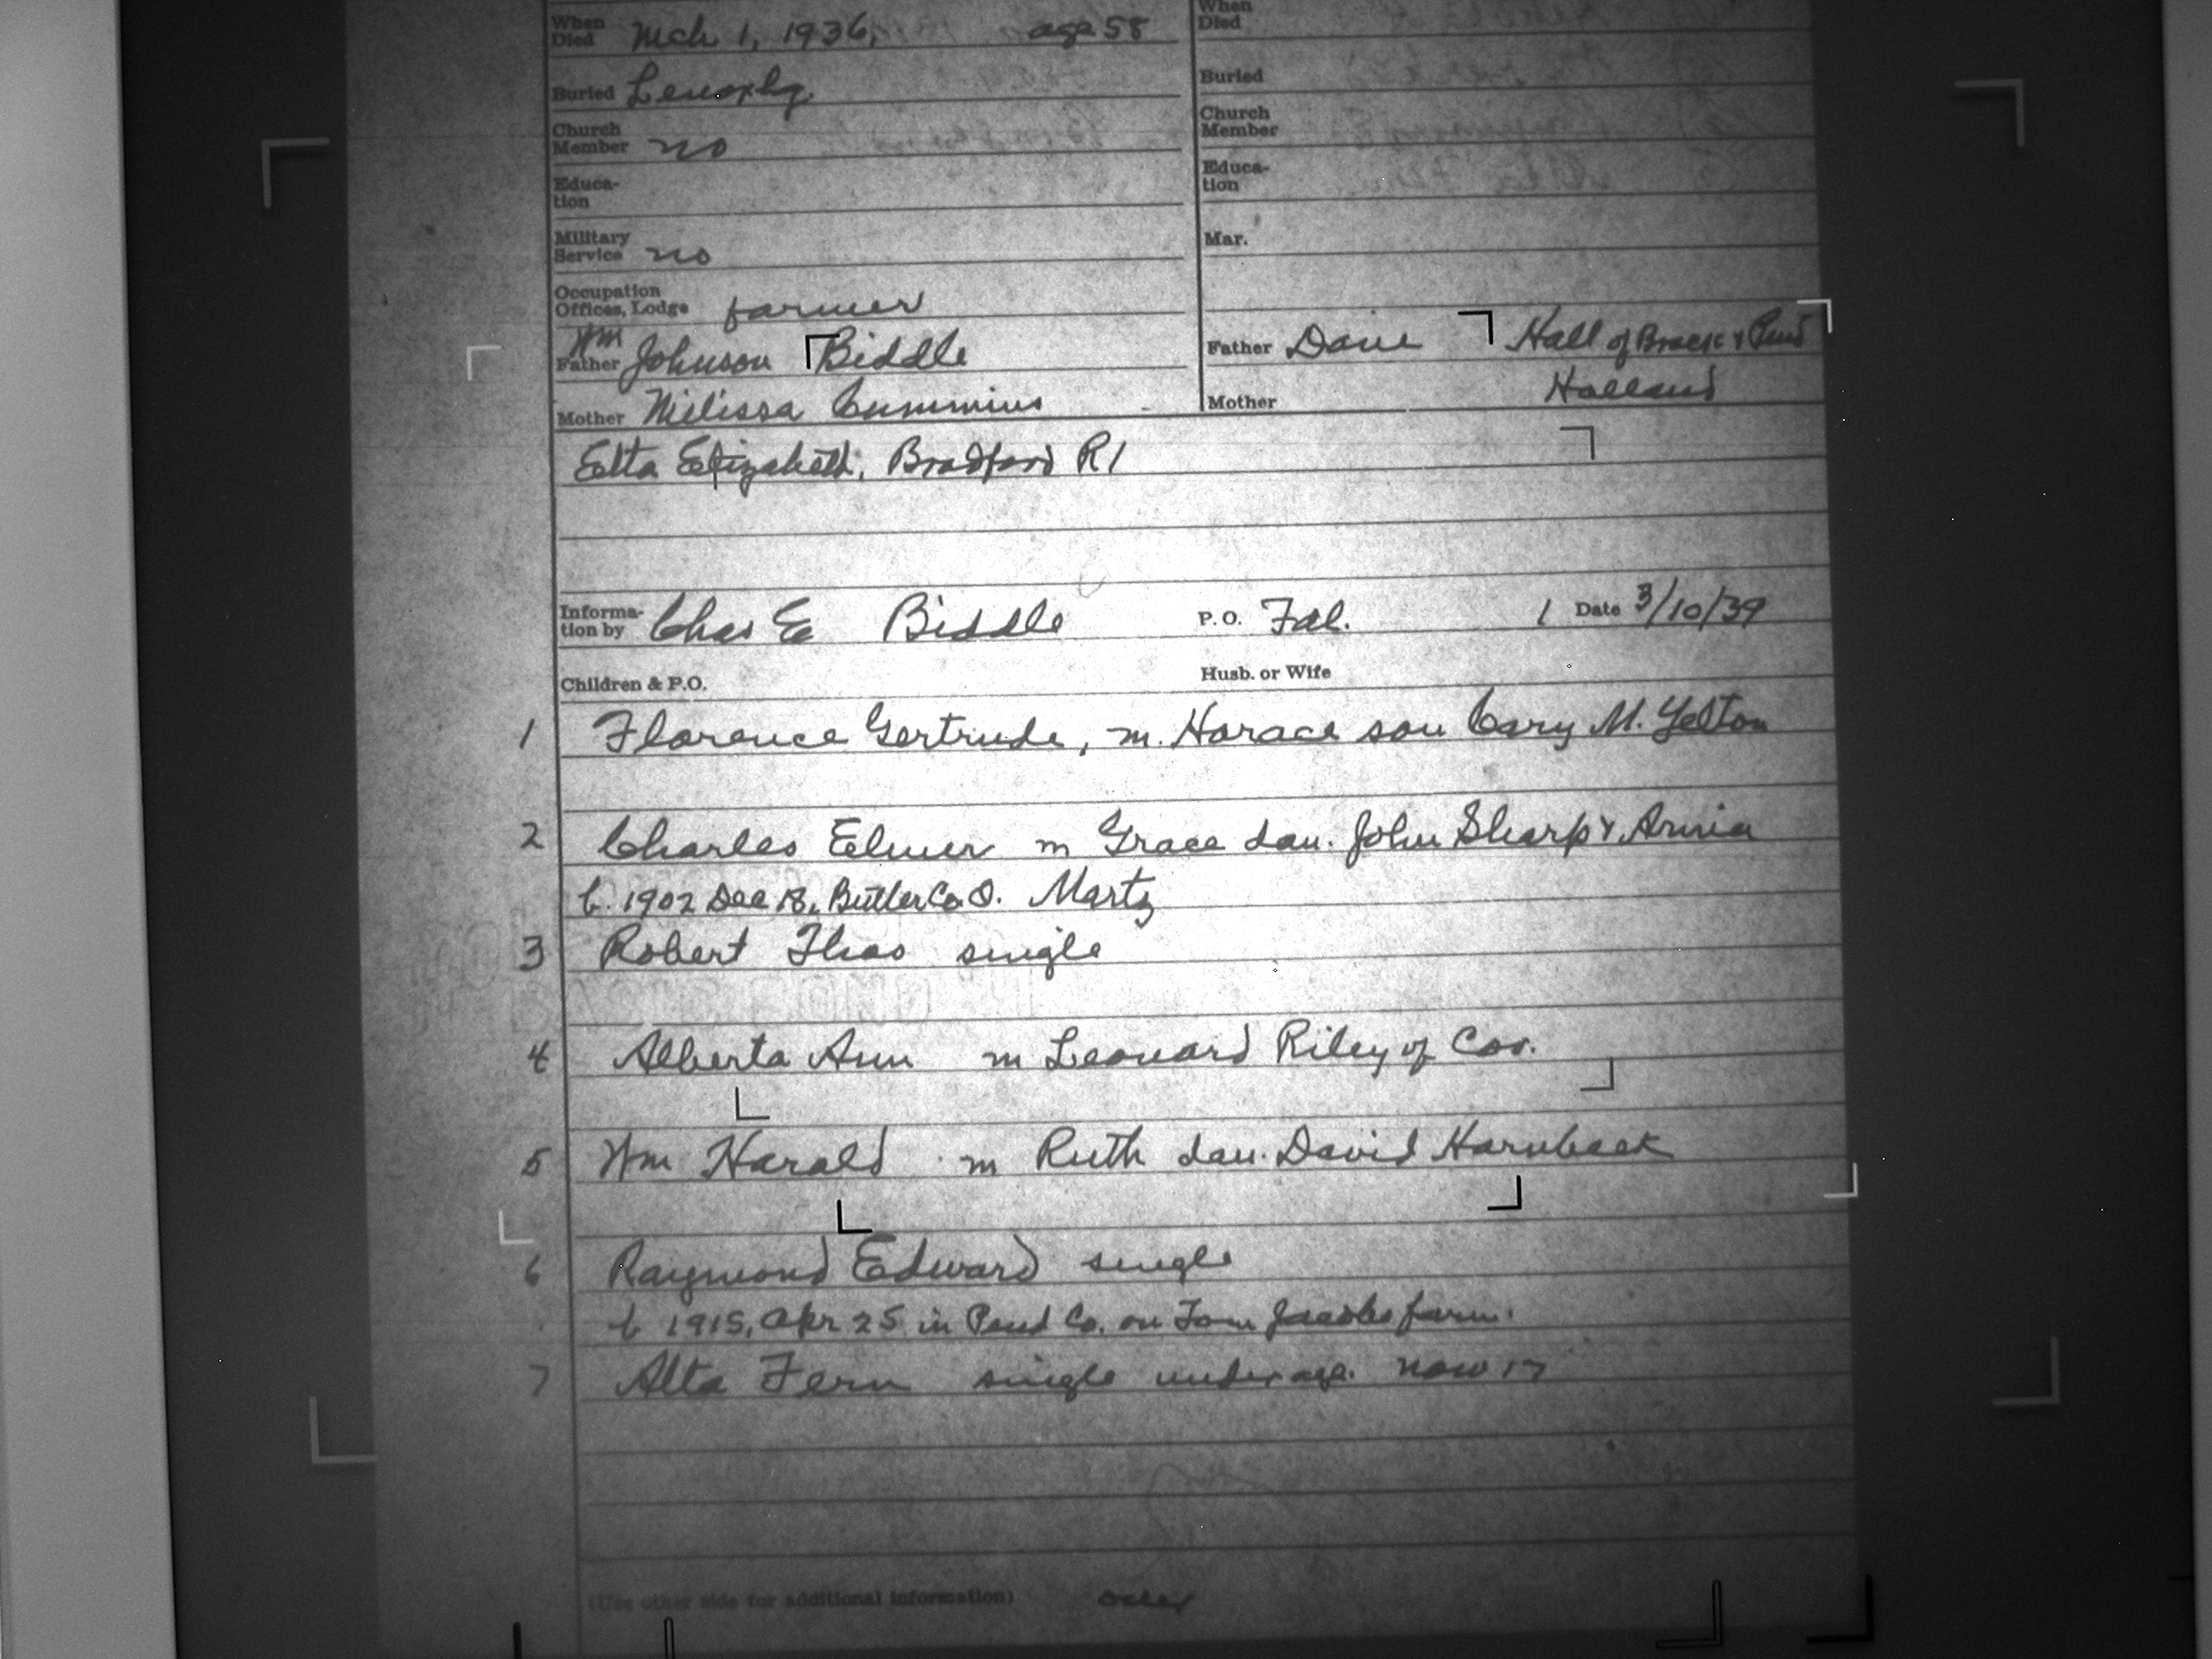 When Died Mch 1, 1936, age 58
When Died
Buried Lenoxbg.
Buried
Church Member no
Church Member
Educa-tion
Educa-tion
Military Service no
Mar.
Occupation Offices, Lodge farmer
Father Wm Johnson Biddle
Father Dave Hall of Brack & Pend
Mother Melissa Cummins
Mother Holland
Etta Elizabeth, Bradford R1
Informa-tion by Chas E Biddle P.O. Fal. 1 Date 3/10/39
Children & P.O. Husb. or Wife
1 Florence Gertrude, m. Horace son Cary M. Yelton
2 Charles Elmer m Grace dau. John Sharp & Annia
b. 1902 Dec 18, Butler Co. O. Martz
3 Robert Thos single
4 Alberta Ann m Leonard Riley of Cov.
5 Wm Harald m Ruth dau. David Harnbeek
6 Raymond Edward single
b 1915, Apr 25 in Pend Co. on Tom Jacobs farm.
7 Alta Fern single under age. now 17
(Use other side for additional information) over